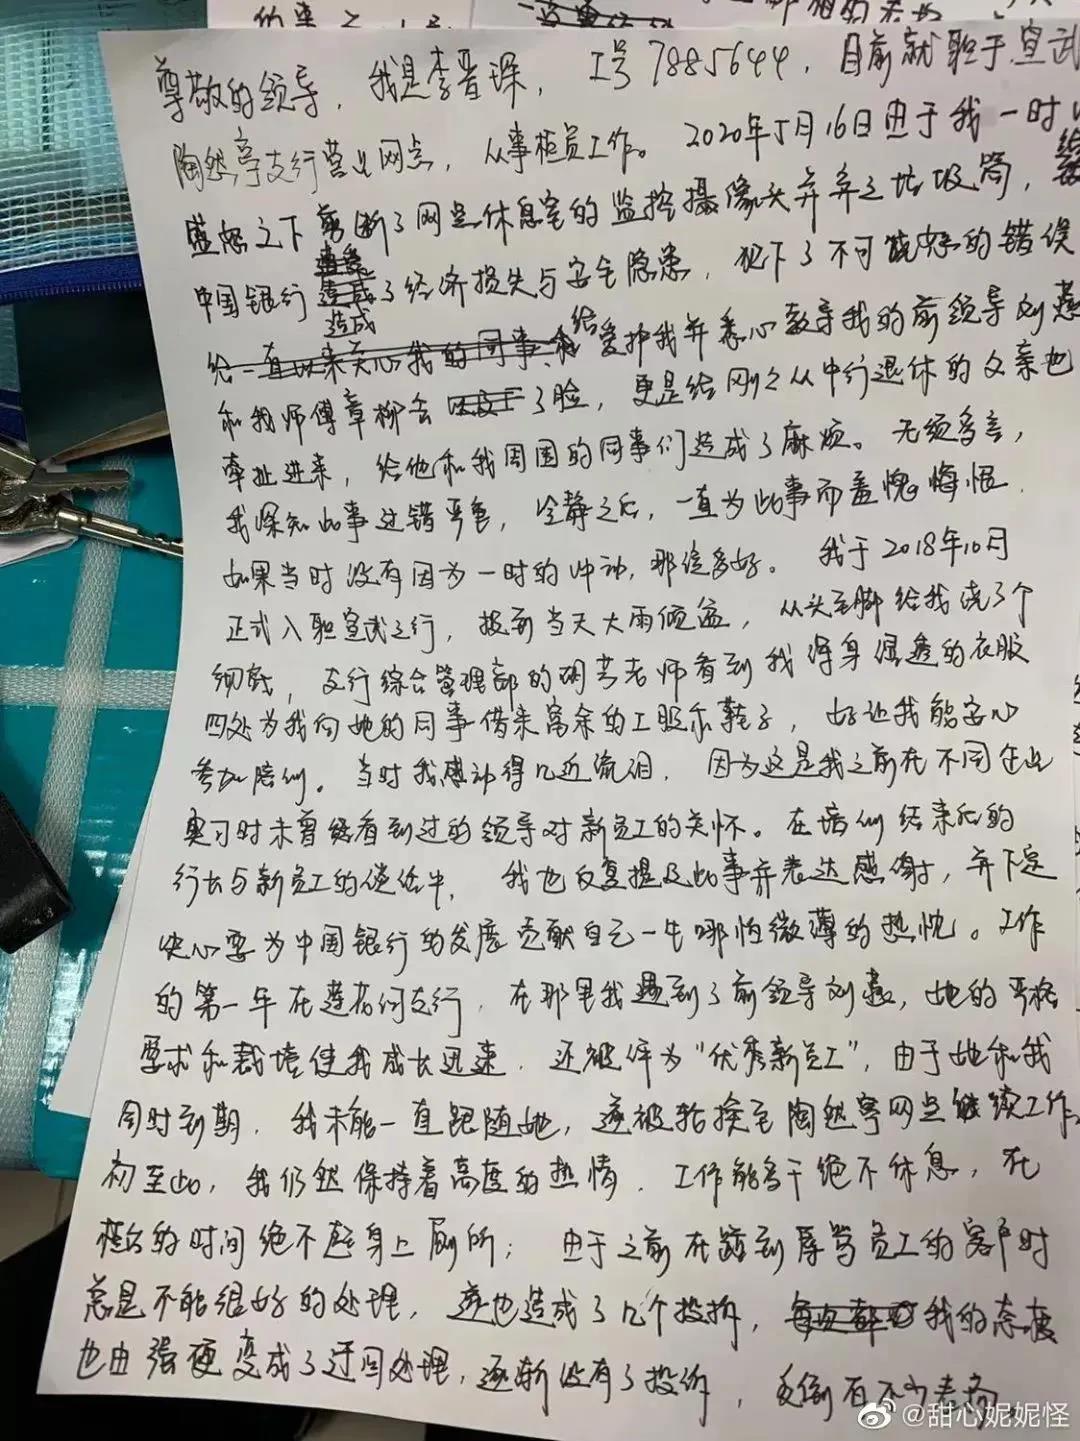 尊敬的领导，我是李晋琛，工号7885644，目前就职于宣武
陶然亭支行营业网点，从事柜员工作。2020年5月16日由于我一时
盛怒之下剪断了网点休息室的监控摄像头并弃之垃圾筒，给
中国银行造成了经济损失与安全隐患，犯下了不可饶恕的错误
给一直以来关心我的同事、给爱护我并悉心教导我的前领导刘燕
和我师傅章柳云了脸，更是给刚刚从中行退休的父亲也
牵扯进来，给他和我周围的同事们造成了麻烦。无须多言，
我深知此事过错严重，冷静之后，一直为此事而羞愧悔恨
如果当时没有因为一时的冲动，那该多好。我于2018年10月
正式入职宣武支行，报到当天大雨倾盆，从头至脚给我浇了个
彻底，支行综合管理部的胡芳老师看到我浑身湿透的衣服
四处为我向她的同事借来富余的工服和鞋子，好让我能安心
参加培训。当时我感动得几近流泪，因为这是我之前在不同企业
实习时未曾经看到过的领导对新员工的关怀。在培训结束后的
行长与新员工的谈话中，我也反复提及此事并表达感谢，并下定
决心要为中国银行的发展贡献自己一生哪怕微薄的热忱。工作
的第一年在莲花河支行，在那里我遇到了前领导刘燕，她的严格
要求和栽培使我成长迅速，还被评为“优秀新员工”，由于她和我
同时到期，我未能一直跟随她，遂被轮换至陶然亭网点继续工作。
初至此，我仍然保持着高度的热情，工作能多干绝不休息，在
柜台的时间绝不起身上厕所；由于之前在踫到辱骂员工的客户时
总是不能很好的处理，遂也造成了几个投拆，我的态度
也由强硬变成了迂回处理，逐渐没有了投诉，反倒有不少表扬。
@甜心妮妮怪